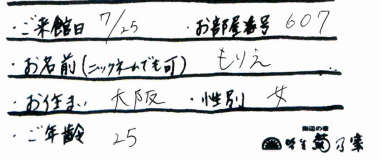 ・ご来館日 7/25 ・お部屋番号 607
・お名前(ニックネームでも可) もりえ
・お住まい 大阪 ・性別 女
・ご年齢 25